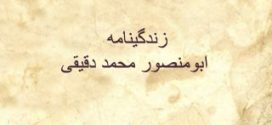 زندگینامه
ابومنصور محمد دقیقی